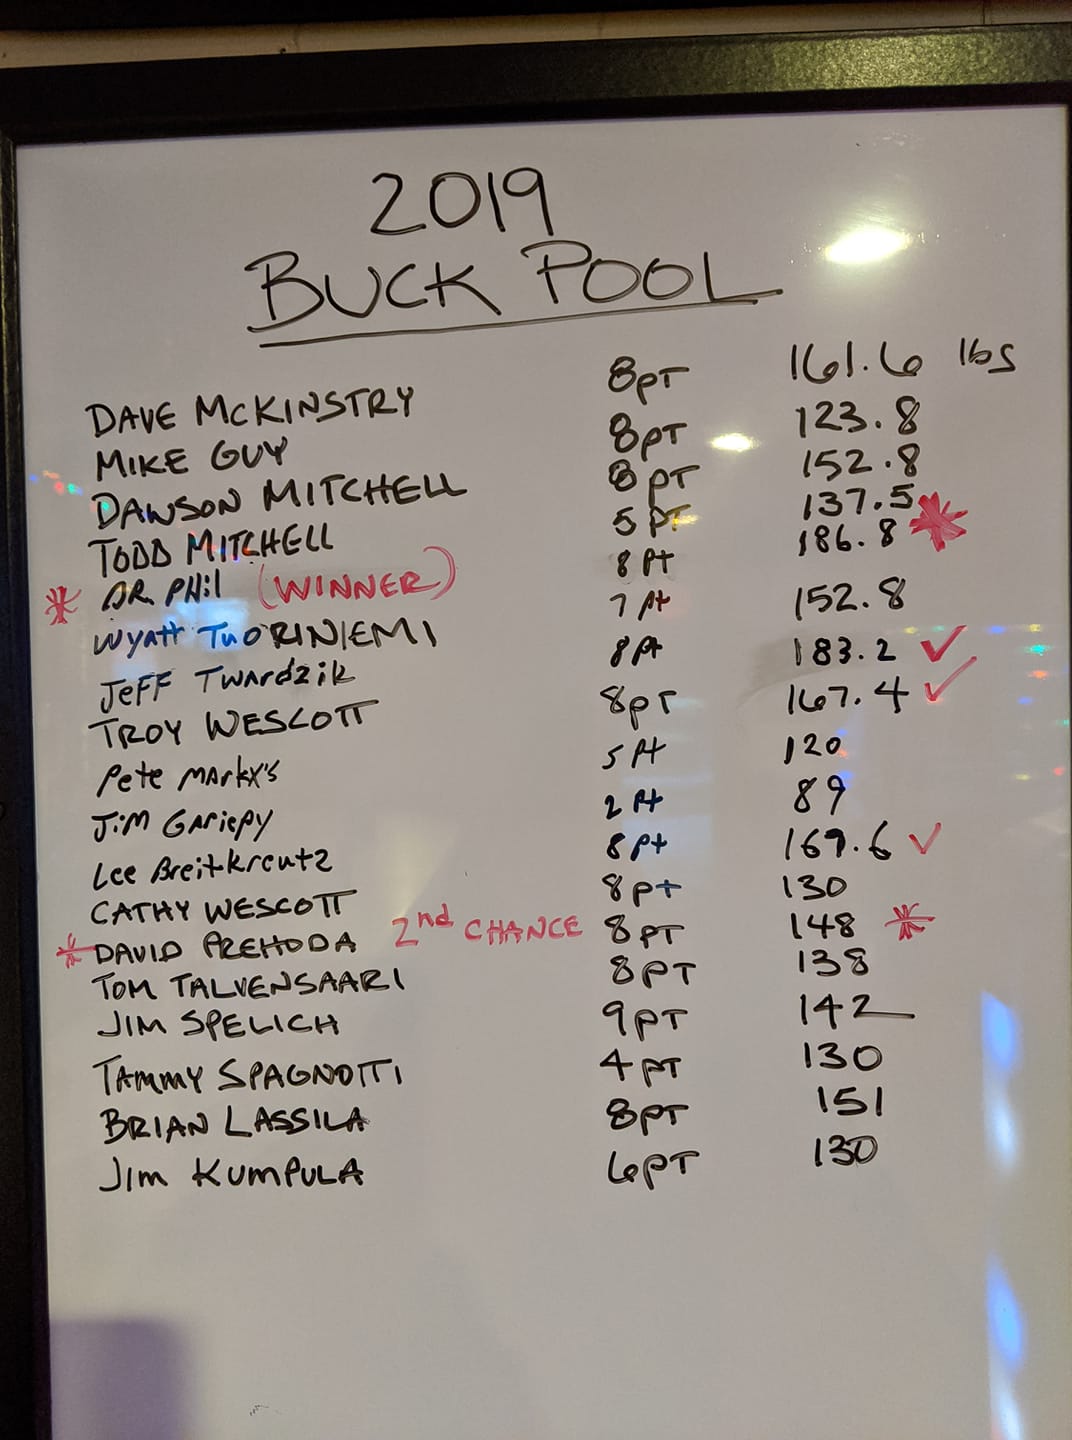 2019
BUCK POOL
DAVE McKINSTRY 8pT 161.6 lbs
MIKE GUY 8pT 123.8
DAWSON MITCHELL 8pT 152.8
TODD MITCHELL 5 pT 137.5
* DR. PHil (WINNER) 8 Pt 186.8 *
Wyatt TuORINIEMI 7 Pt 152.8
JeFF Twardzik 8 Pt 183.2 ✓
TROY WESCOTT 8pT 167.4 ✓
Pete Markx's 5 Pt 120
Jim Gariepy 2 Pt 89
Lee Breitkreutz 8 pt 169.6 ✓
CATHY WESCOTT 8pt 130
* DAVID PREHODA 2nd CHANCE 8pT 148 *
TOM TALVENSAARI 8pT 138
JIM SPELICH 9pT 142
TAmmY SPAGNOTTI 4 pT 130
BRIAN LASSILA 8pT 151
Jim KUMPULA 6pT 130